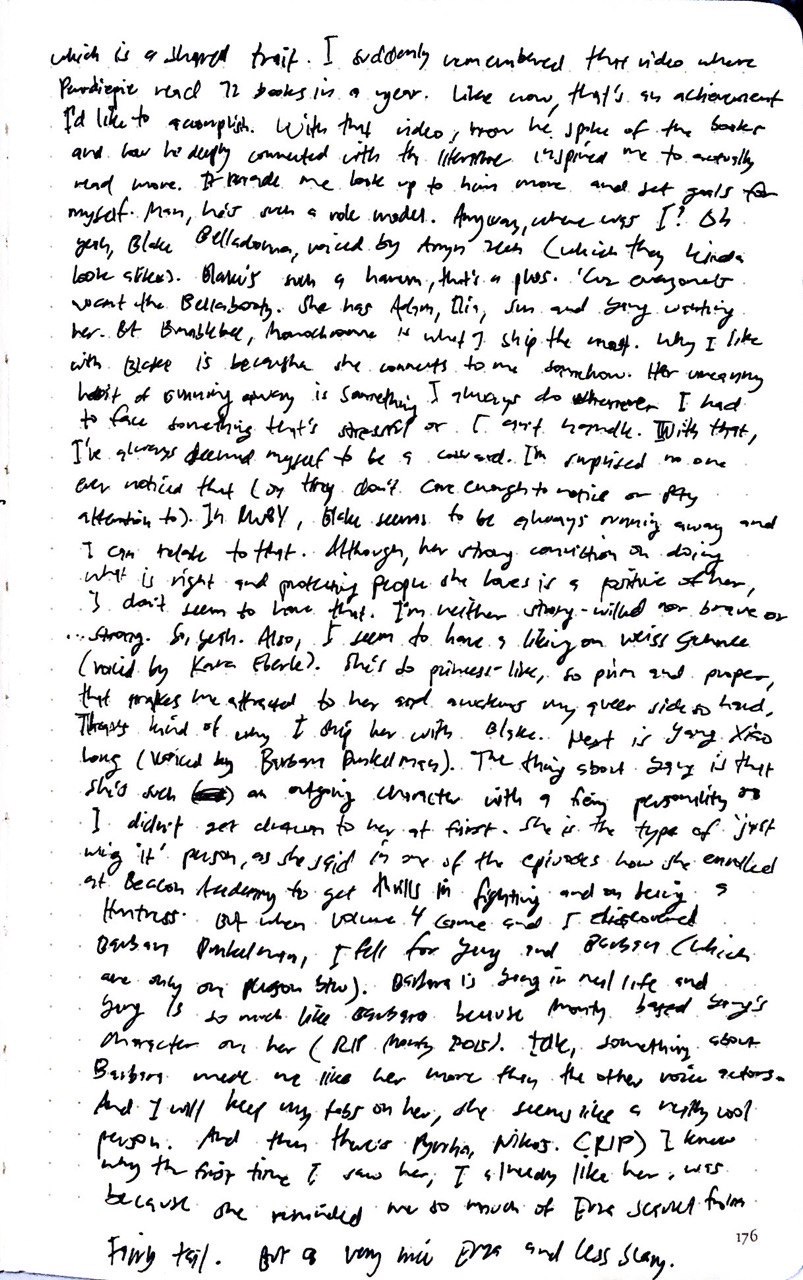 which is a shared trait. I suddenly remembered that video where
Pewdiepie read 72 books in a year. Like wow, that's an achievement
I'd like to accomplish. With that video, how he spoke of the books
and how he deeply connected with the literature inspired me to actually
read more. It made me look up to him more and set goals for
myself. Man, he's such a role model. Anyway, where was I? Oh
yeah, Blake Belladonna, voiced by Arryn Zech (which they kinda
look alike). Blake's such a harem, that's a plus. 'Cuz everyone's
want the Bellabooty. She has Adam, Ilia, Sun and Yang wanting
her. Bt Bumblebee, Monochrome is what I ship the most. Why I like
with Blake is because she connects to me somehow. Her uncanny
habit of running away is something I always do whenever I had
to face something that's stressful or I can't handle. With that,
I've always deemed myself to be a coward. I'm surprised no one
ever noticed that (or they don't care enough to notice or pay
attention to). In RWBY, Blake seems to be always running away and
I can relate to that. Although, her strong conviction on doing
what is right and protecting people she loves is a positive of her,
I don't seem to have that. I'm neither strong-willed nor brave or
...strong. So, yeah. Also, I seem to have a liking on Weiss Schnee
(voiced by Kara Eberle). She's so princess-like, so prim and proper,
that makes me attracted to her and awakens my queer side so hard.
That's kind of why I ship her with Blake. Next is Yang Xiao
Long (voiced by Barbara Dunkelman). The thing about Yang is that
she's such an outgoing character with a fiery personality so
I didn't get drawn to her at first. She is the type of 'just
wing it' person, as she said in one of the episodes how she enrolled
at Beacon Academy to get thrills in fighting and on being a
Huntress. But when Volume 4 came and I discovered
Barbara Dunkelman, I fell for Yang and Barbara (which
are only one person btw). Barbara is Yang in real life and
Yang is so much like Barbara because Monty based Yang's
character on her (RIP Monty 2015). Idk, something about
Barbara made me like her more than the other voice actors.
And I will keep my tabs on her, she seems like a really cool
person. And then there's Pyrrha Nikos. (RIP) I knew
why the first time I saw her, I already like her, was
because she reminded me so much of Erza Scarlet from
Fairy Tail. But a very nice Erza and less scary.
176